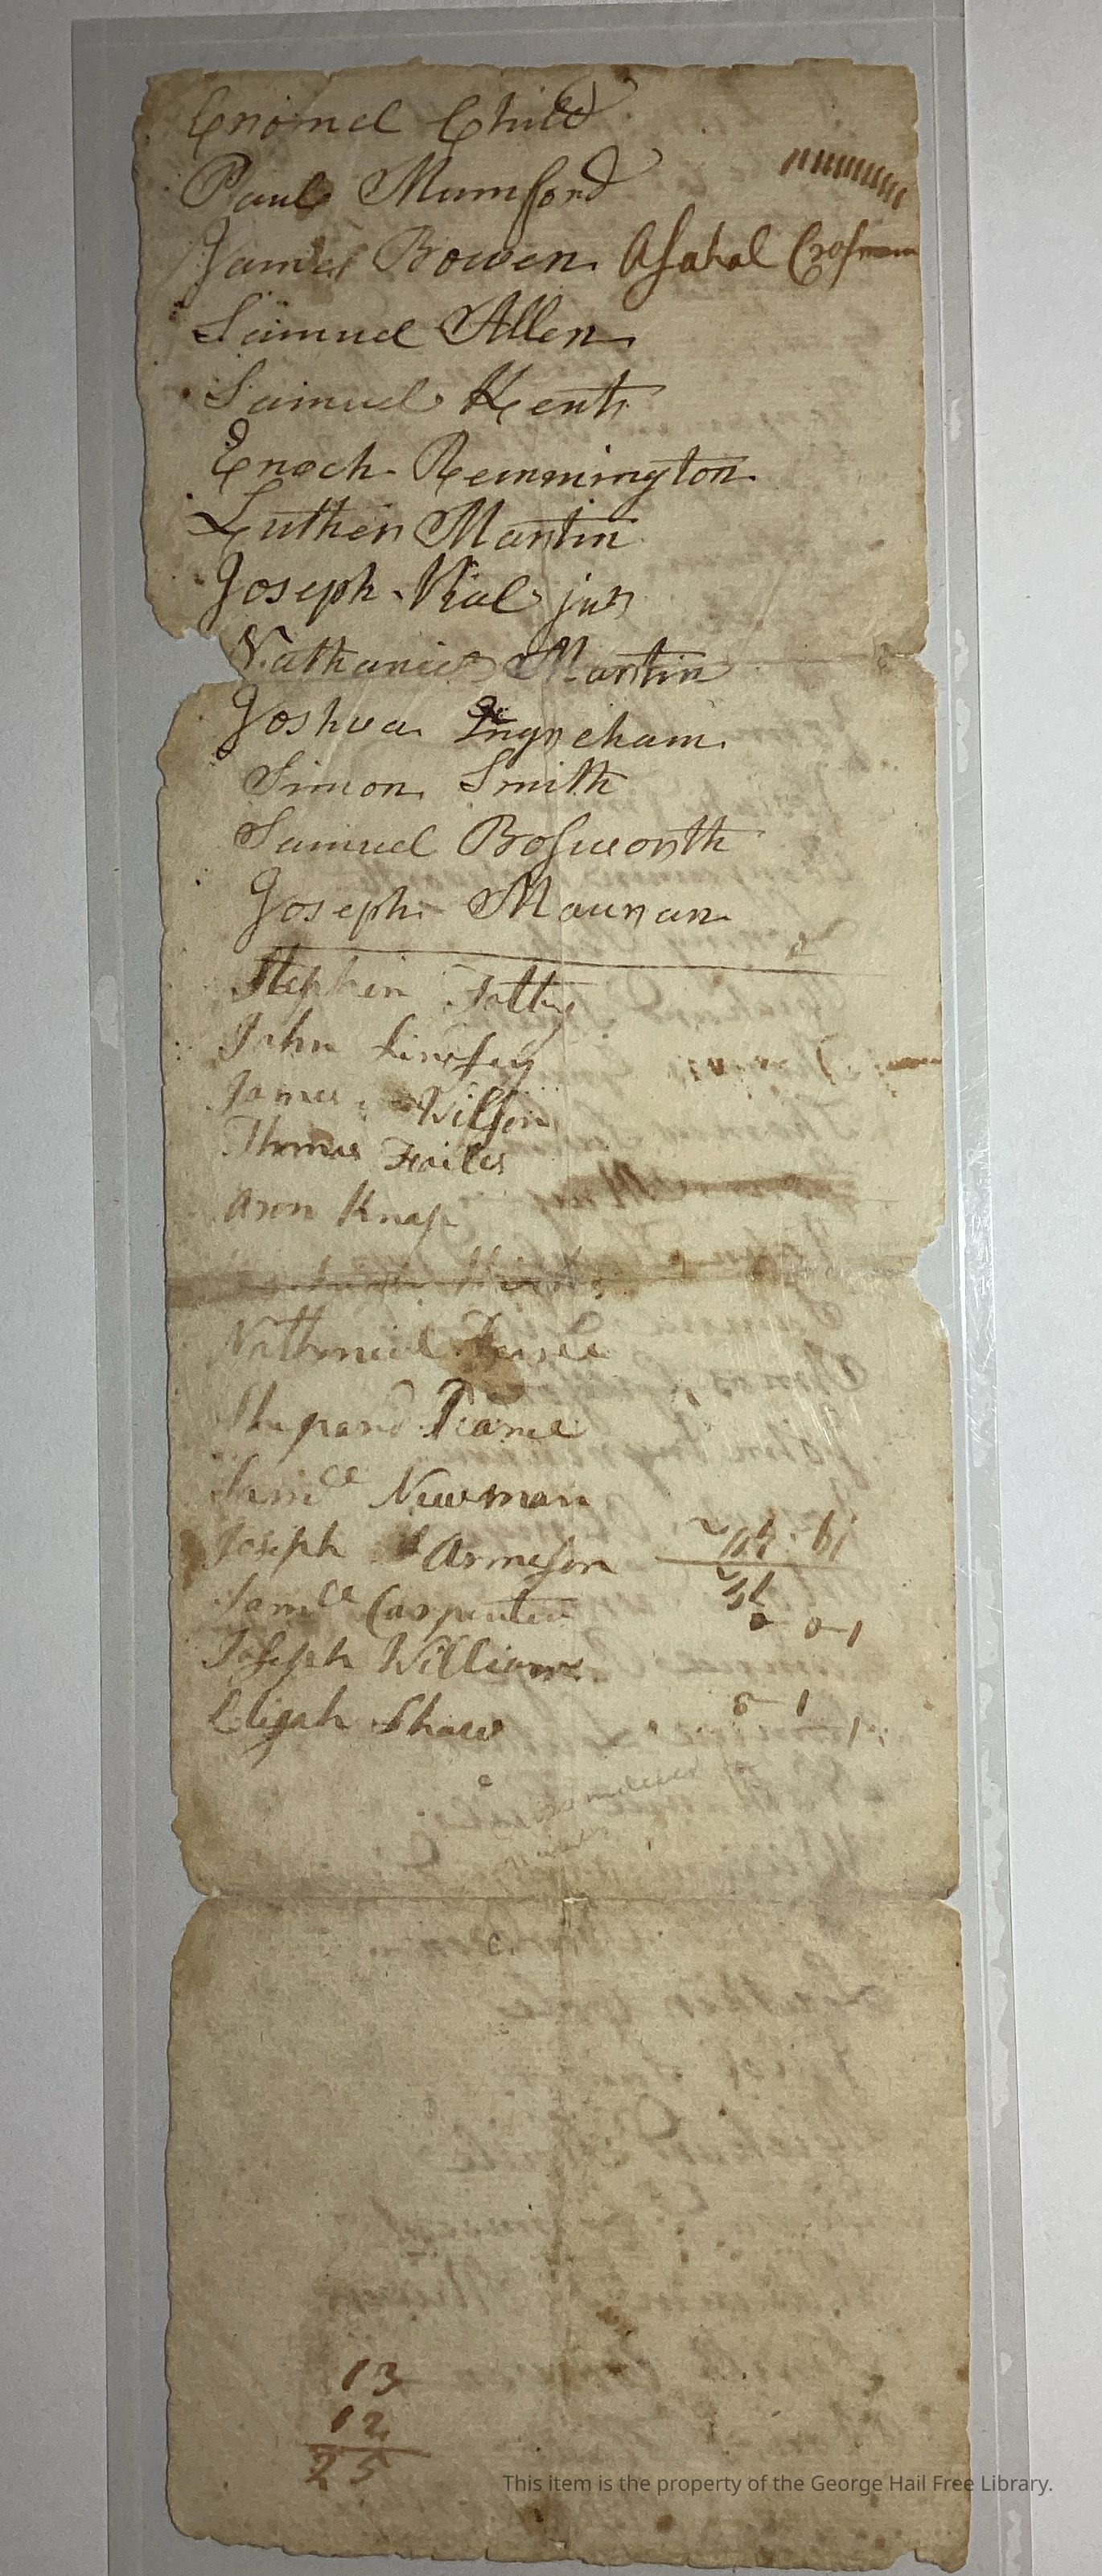 Cromel Child
Paul Mumford
James Bowen Asahal Crosman
Samuel Allen
Samuel Kent
Enoch Remmington
Luther Martin
Joseph Vial junr
Nathaniel Martin
Joshua Ingreham
Simon Smith
Samuel Bosworth
Joseph Mauran
Stephen Talby
John Linsey
James Wilson
Thomas Frailes
Aron Knap
Nathaniel
Shepard Pearce
Samll Newman
Joseph Armeson
Samll Carpenter
Joseph William
Elijah Shaw
13
12
25
This item is the property of the George Hail Free Library.